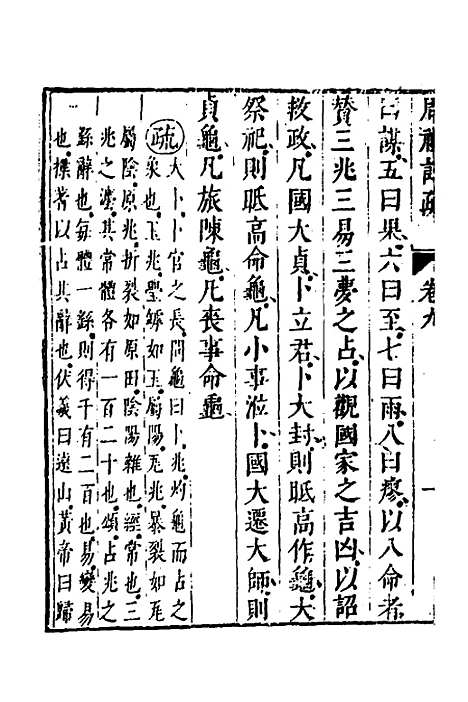 周禮註疏 卷九 一
曰謀五曰果六曰至七曰雨八曰瘳以八命者
贊三兆三易三夢之占以觀國家之吉凶以詔
救政凡國大貞卜立君卜大封則眡高作龜大
祭祀則眡高命龜凡小事涖卜國大遷大師則
貞龜凡旅陳龜凡喪事命龜
疏大卜卜官之長問龜曰卜兆灼龜而占之
象也玉兆璺罅如玉屬陽瓦兆暴裂如瓦
屬陰原兆折裂如原田陰陽雜也經常也三
兆之灋其常體各有一百二十也頌占兆之
繇辭也每體一繇則得千有二百也易變易
也揲蓍以占其辭也伏羲曰連山黃帝曰歸